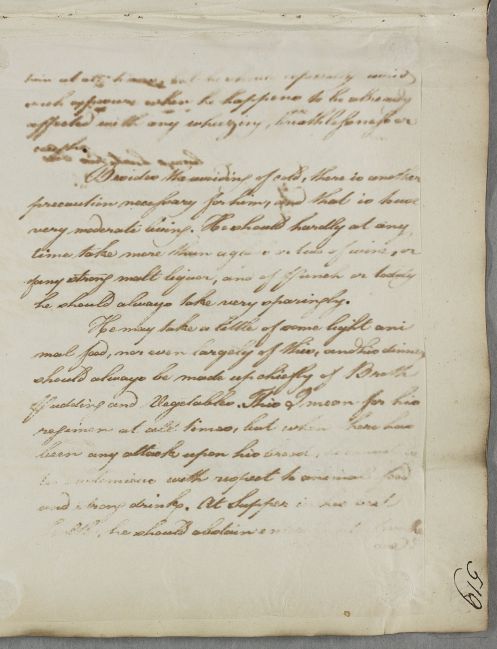 tain at all times, but he should especially avoid
such exposure when he happens to be already
affected with any wheezing, breathlessness or
cough.
Besides the avoiding of cold, there is another
precaution necessary for him, and that is to use
very moderate living. He should hardly at any
time take more than a glass or two of wine, or
of any strong malt liquor, and of Punch or toddy
he should always take very sparingly.
He may take a little of some light ani
mal food, nor even largely of this, and his dinner
should always be made up chiefly of Broth
Pudding and Vegetables. This I mean for his
regimen at all times, but when there has
been any attack upon his breast,
with respect to animal food
and strong drinks. At Supper
he should abstain
519